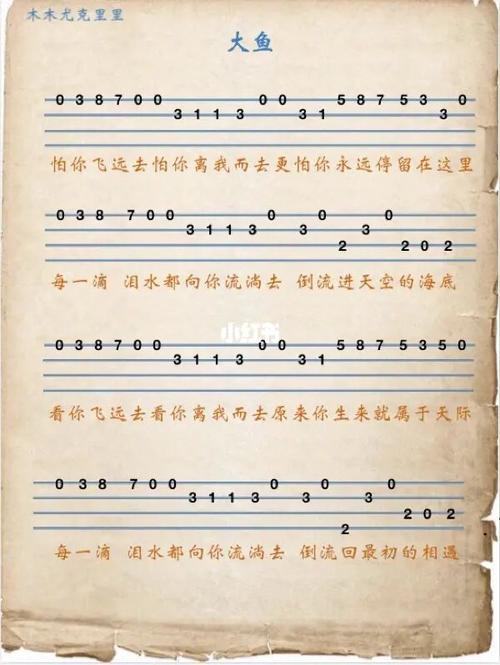 木木尤克里里
大鱼
0 3 8 7 0 0 3 1 1 3 0 0 3 1 5 8 7 5 3 3 0
怕你飞远去怕你离我而去更怕你永远停留在这里
0 3 8 7 0 0 3 1 1 3 0 3 0 2 3 0 2 0 2
每一滴 泪水都向你流淌去 倒流进天空的海底
小红书
0 3 8 7 0 0 3 1 1 3 0 0 3 1 5 8 7 5 3 5 0
看你飞远去看你离我而去原来你生来就属于天际
0 3 8 7 0 0 3 1 1 3 0 3 0 2 3 0 2 0 2
每一滴 泪水都向你流淌去 倒流回最初的相遇